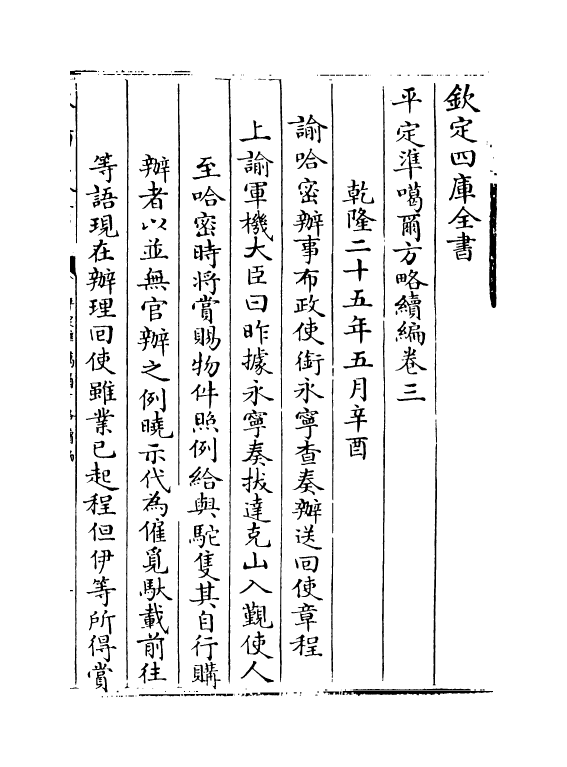 欽定四庫全書
平定準噶爾方略續編卷三
乾隆二十五年五月辛酉
諭哈密辦事布政使銜永寧查奏辦送回使章程
上諭軍機大臣曰昨據永寧奏拔達克山入覲使人
至哈密時將賞賜物件照例給與駝隻其自行購
辦者以並無官辦之例曉示代為僱覓馱載前往
等語現在辦理回使雖業已起程但伊等所得賞